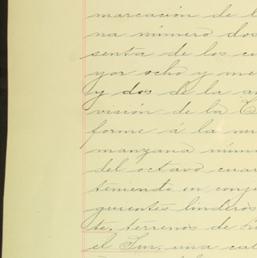 marcación de l
na número dos
senta de los cu
yor ocho y me
y dos de la an
visión de la C
forme á la nu
manzana núm
del octavo cuar
teniendo en conj
guientes linderos
te, terrenos de
el Sur, una cal